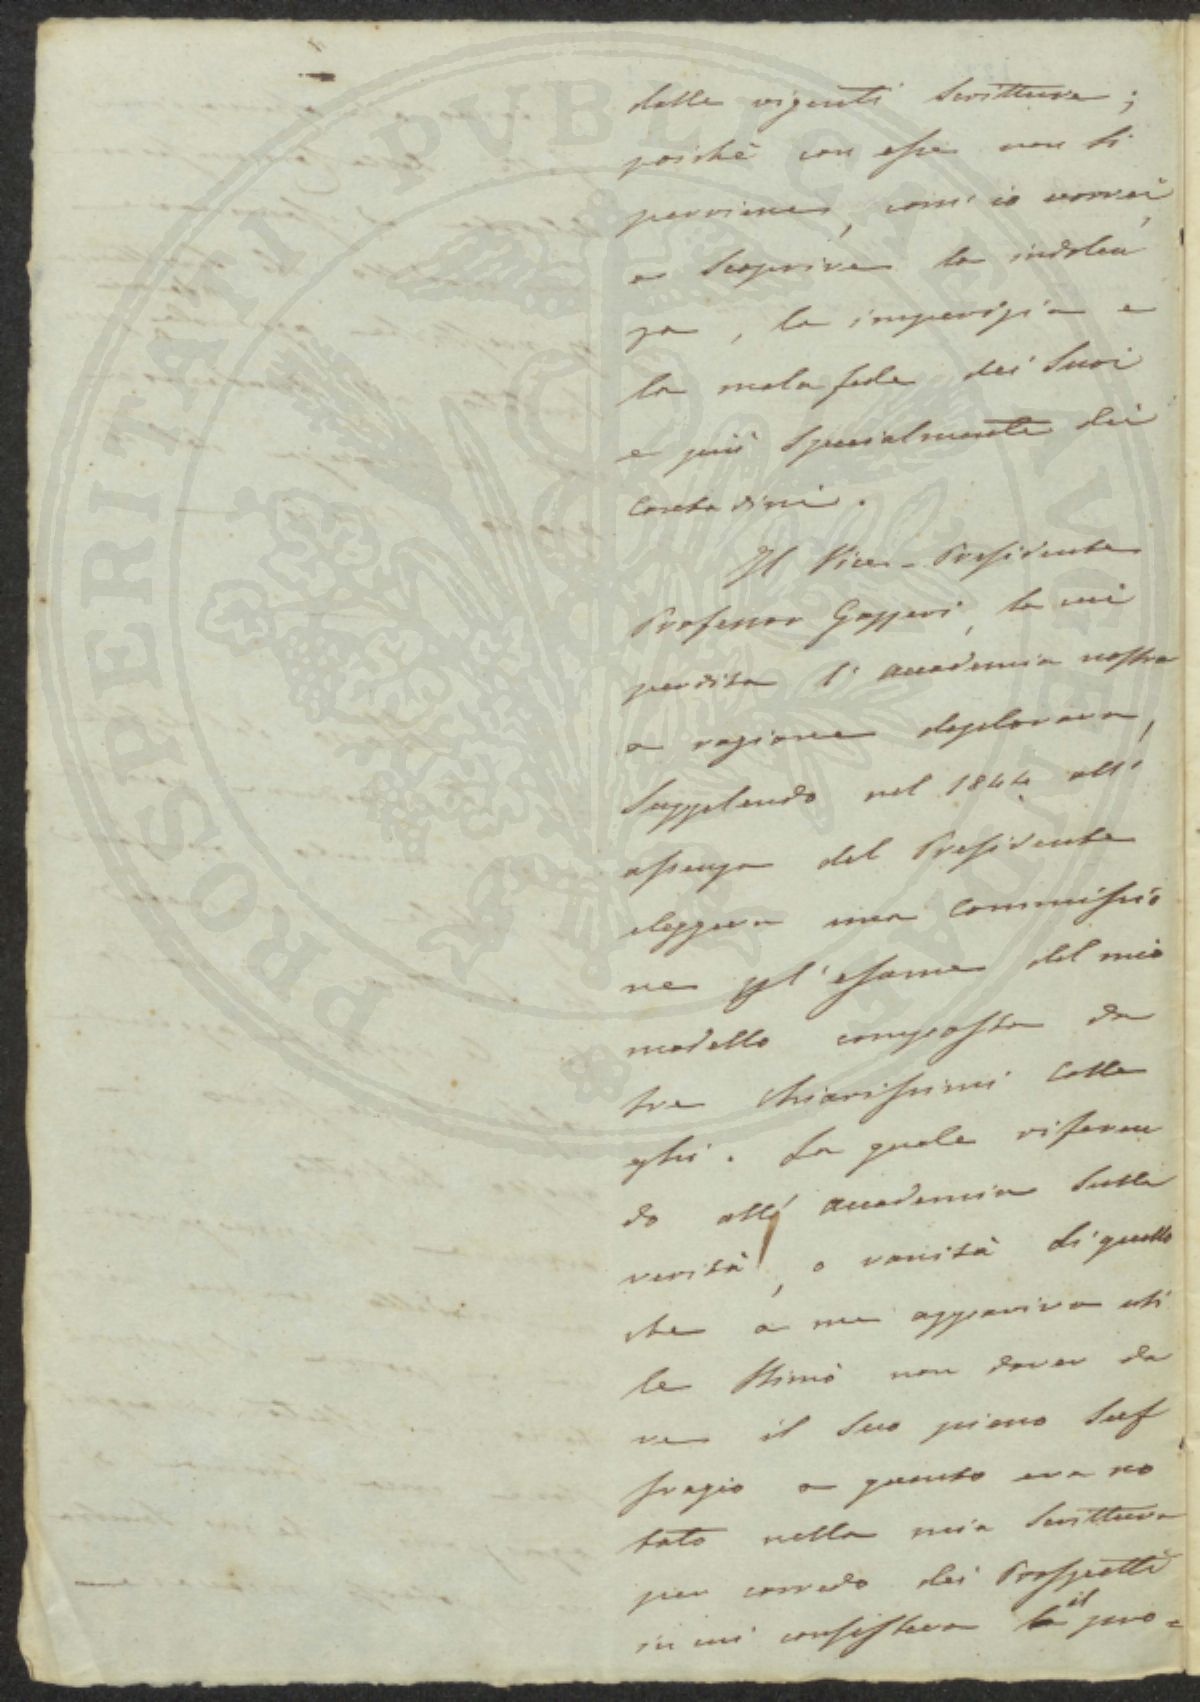 PROSPERITATI PVBLICAE AVGENDAE
delle vigenti Scritture;
poichè con esse non si
perviene, com' io vorrei,
a Scoprire la indolen
za, la imperizia e
la mala fede dei Suoi
e più Specialmente dei
Contadini.
Il Vice-Presidente
Professor Gazzeri, la cui
perdita l' accademia nostra
a ragione deplorava,
Supplendo nel 1844 all'
assenza del Presidente
eleggeva una Commissio
ne pel' esame del mio
modello composta da
tre Chiarissimi Colle
ghi. La quale riferen
do all' accademia Sulla
verità, o vanità di quello
che a me appariva uti
le Stimò non dover da
re il Suo pieno Suf
fragio a quanto era no
tato nella mia Scrittura
per corredo dei Prospetti
in cui consisteva il pro=